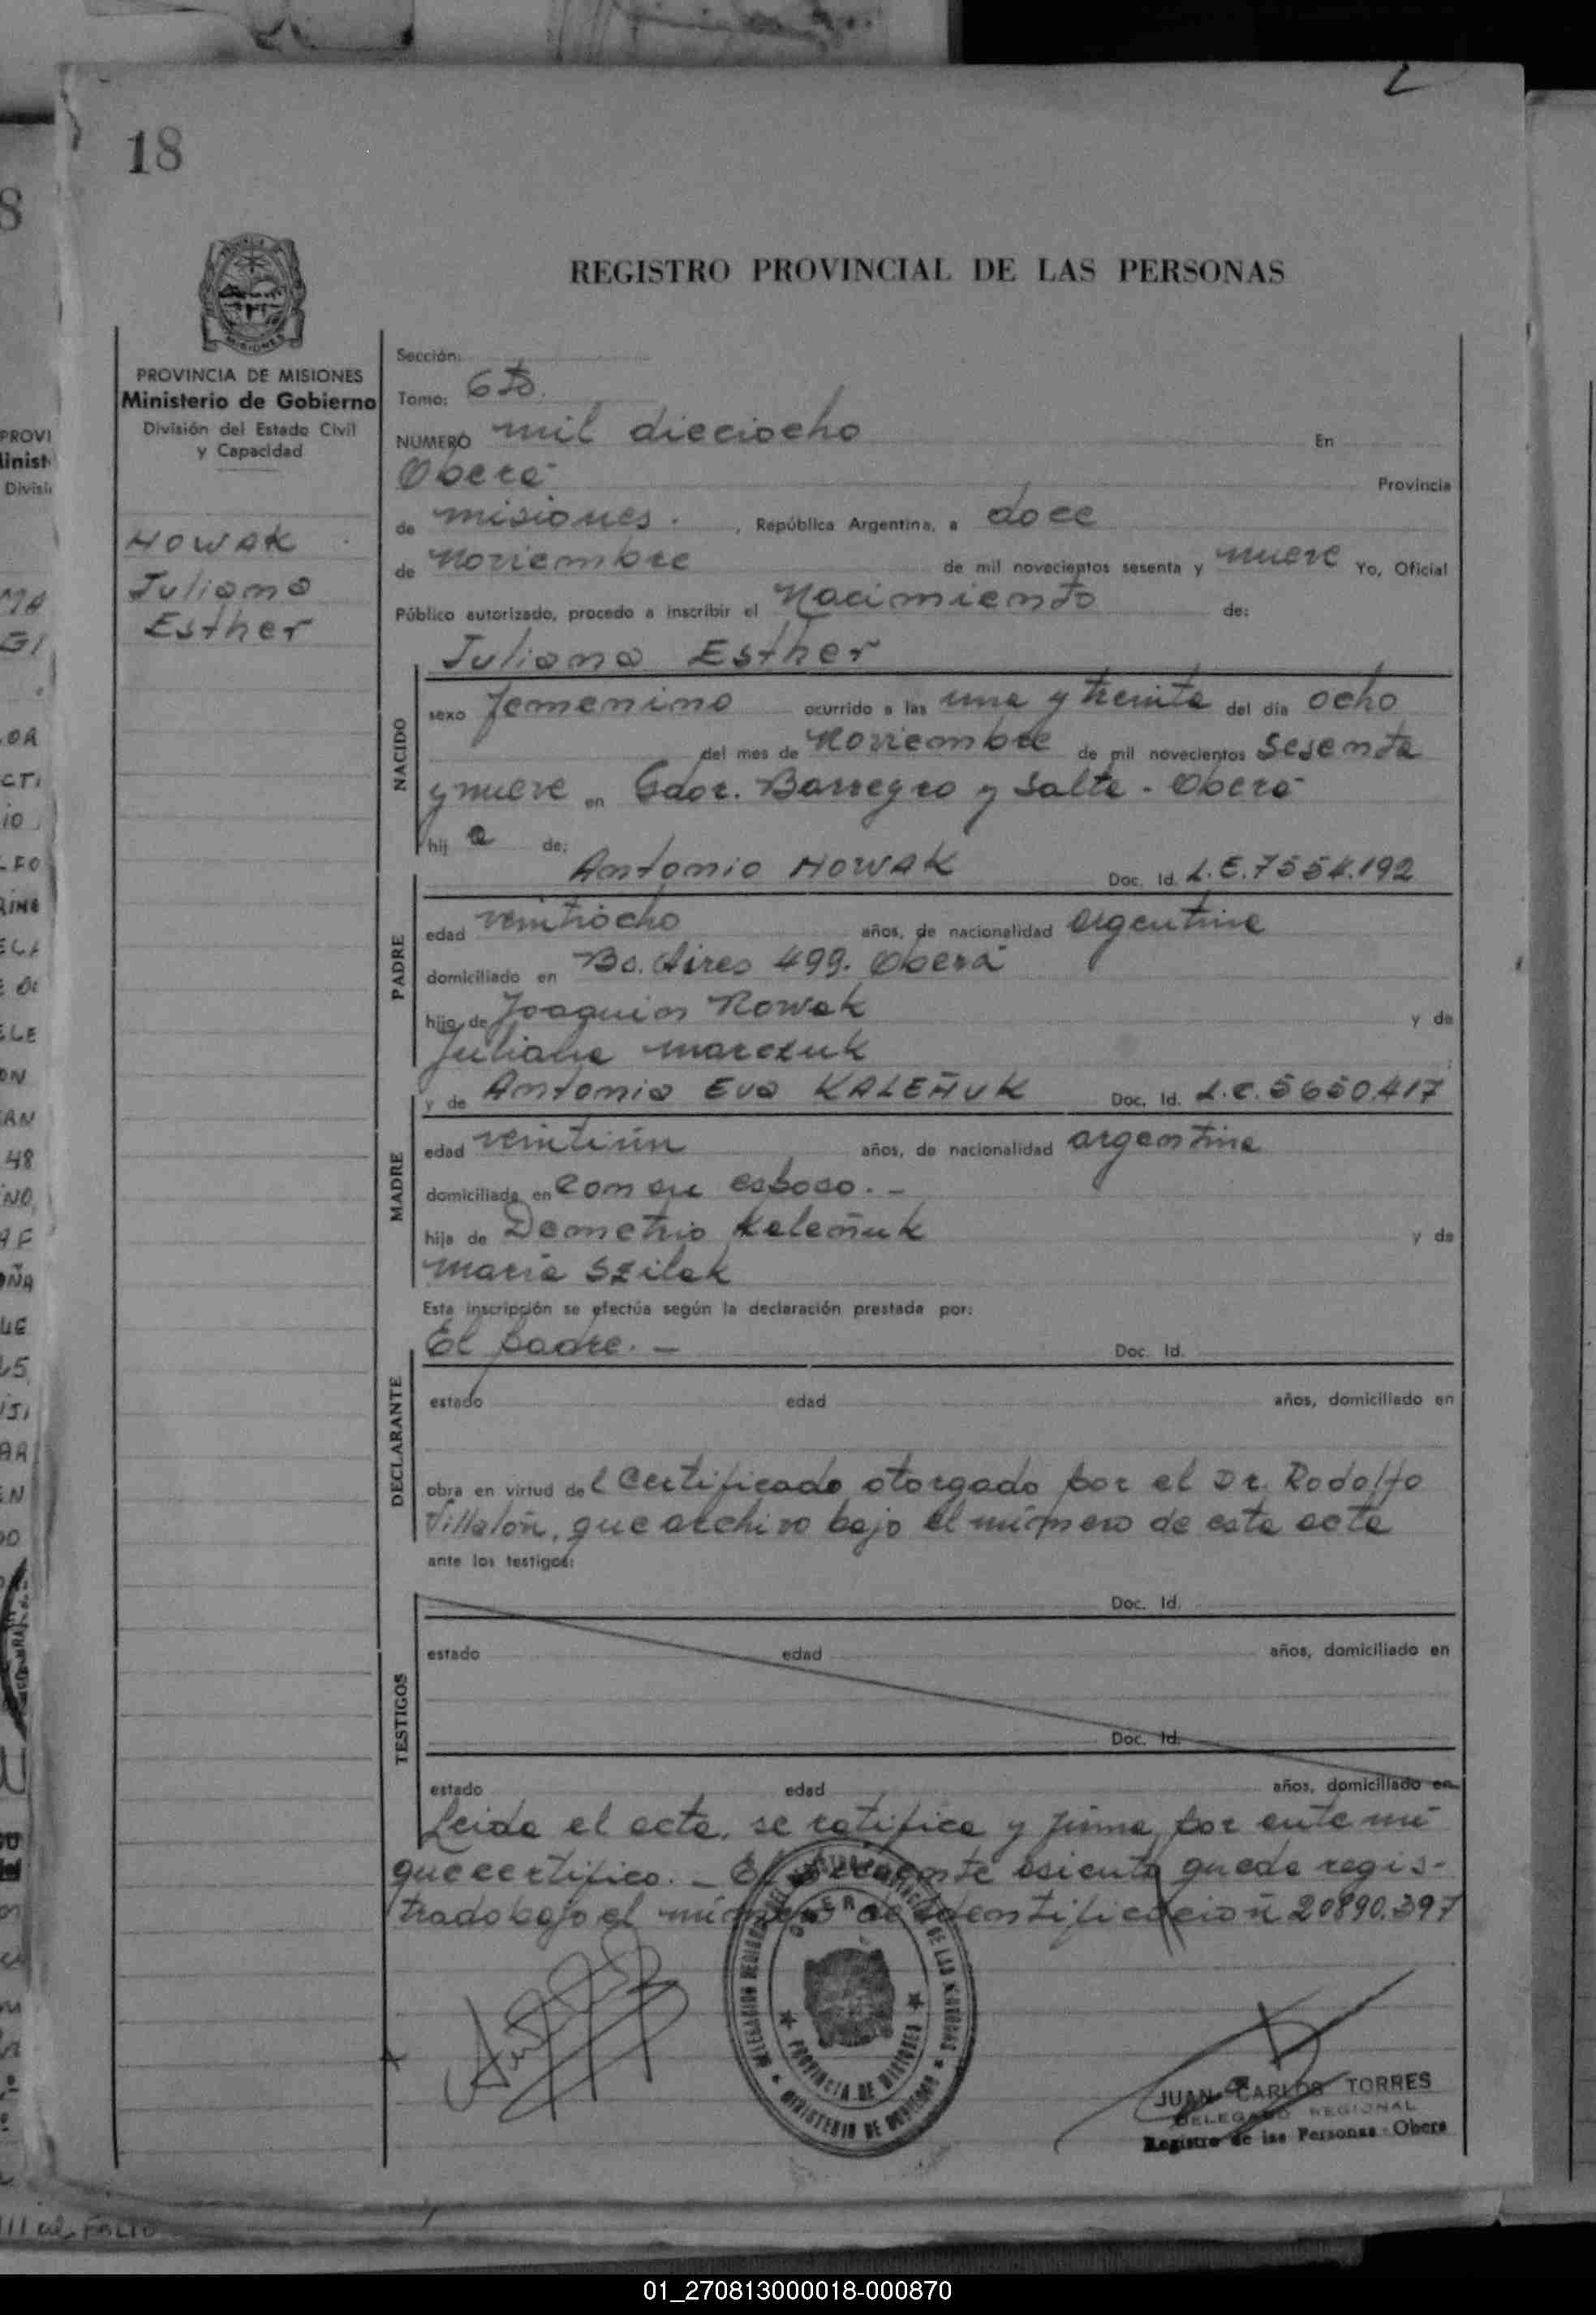 18
REGISTRO PROVINCIAL DE LAS PERSONAS
PROVINCIA DE MISIONES
Ministerio de Gobierno
División del Estado Civil
y Capacidad
NOWAK
Juliana
Esther
Sección:
Tomo: 6to.
NUMERO mil dieciocho En
Oberá Provincia
de misiones. , República Argentina, a doce
de Noviembre de mil novecientos sesenta y nueve Yo, Oficial
Público autorizado, procedo a inscribir el Nacimiento de:
Juliana Esther
NACIDO
sexo femenino ocurrido a las una y treinta del día ocho
del mes de Noviembre de mil novecientos sesenta
y nueve en Gdor. Barreyro y Salta - Oberá
hij a de:
Antonio NOWAK Doc. Id. L.E.7554.192
PADRE
edad veintiocho años, de nacionalidad argentina
domiciliado en Bs. Aires 499. Oberá
hijo de Joaquin Nowak y de
Juliana Marczuk
y de Antonia Eva KALEÑUK Doc. Id. L.C.5650.417
MADRE
edad veintiún años, de nacionalidad argentina
domiciliada en con su esposo. -
hija de Demetrio Kaleñuk y de
María Szilak
Esta inscripción se efectúa según la declaración prestada por:
El padre. - Doc. Id.
DECLARANTE
estado edad años, domiciliado en
obra en virtud del Certificado otorgado por el Dr. Rodolfo
Villalón, que archivo bajo el número de esta acta
ante los testigos:
Doc. Id.
TESTIGOS
estado edad años, domiciliado en
Doc. Id.
estado edad años, domiciliado en
Leida el acta, se ratifica y firma, por ante mí
que certifico. - El presente asiento queda regis-
trado bajo el número de identificación 20890.397
DELEGACION REGISTRO PROVINCIAL DE LAS PERSONAS
OBERA
PROVINCIA DE MISIONES
MINISTERIO DE GOBIERNO
JUAN CARLOS TORRES
DELEGADO REGIONAL
Registro de las Personas - Obera
01_270813000018-000870